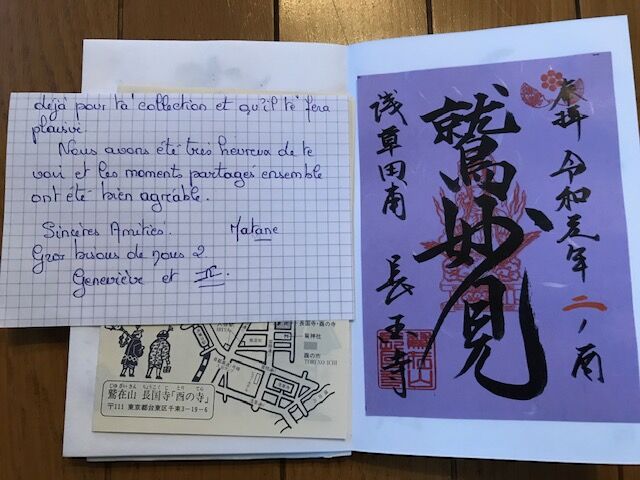 déjà pour ta collection et qu'il te fera
plaisir.
Nous avons été très heureux de te
voir et les moments partagés ensemble
ont été bien agréable.
Sincères Amitiés. Matane
Gros bisous de nous 2.
Geneviève et JC.
長国寺・酉の寺
鷲神社
酉の市
TORI NO ICHI
鷲在山 長国寺「酉の寺」
〒111 東京都台東区千束3-19-6
奉拝 令和元年 二ノ酉
鷲妙見
浅草田甫 長国寺